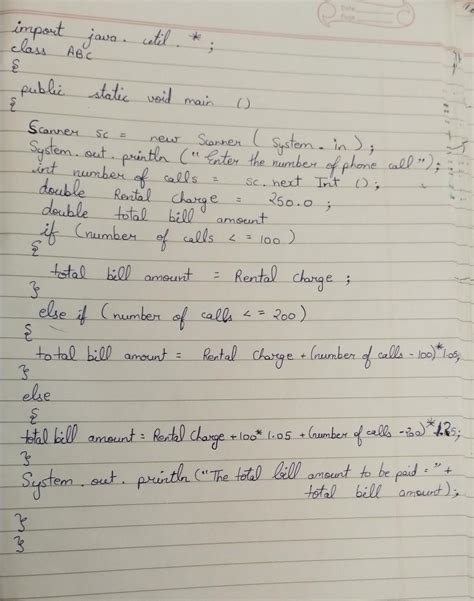 import java. util. *;
class ABC
{
public static void main ()
{
Scanner sc = new Scanner ( System. in );
System. out. println ("Enter the number of phone call");
int number of calls = sc. next Int ();
double Rental Charge = 250.0 ;
double total bill amount
if (number of calls < = 100)
{
total bill amount = Rental Charge ;
}
else if (number of calls < = 200)
{
total bill amount = Rental Charge + (number of calls - 100)* 1.05;
}
else
{
total bill amount = Rental Charge + 100* 1.05 + (number of calls - 200)*
}
System. out. println ("The total bill amount to be paid = " +
total bill amount);
}
}